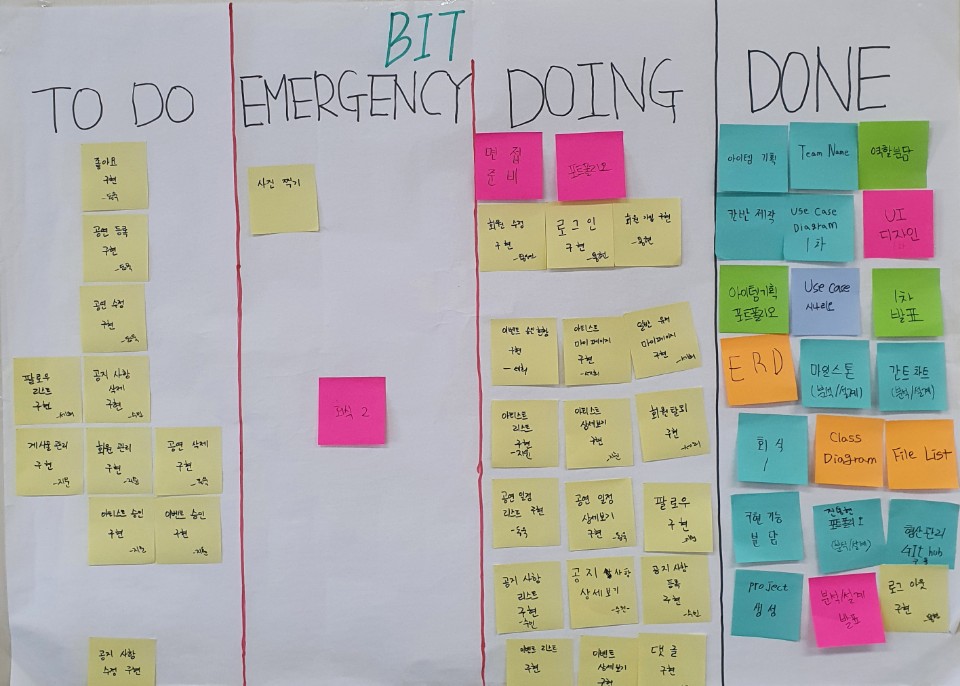 BIT
TO DO
좋아요
구현
공연 등록
구현
공연 수정
구현
팔로우
리스트
구현
공지 사항
삭제
구현
게시물 관리
구현
회원 관리
구현
공연 삭제
구현
아티스트 승인
구현
이벤트 승인
구현
공지 사항
수정 구현
EMERGENCY
사진 찍기
회식 2
DOING
면접
준비
포트폴리오
회원 수정
구현
로그인
구현
회원 가입 구현
이벤트 승인 현황
구현
아티스트
마이페이지
구현
일반 유저
마이페이지
구현
아티스트
리스트
구현
아티스트
상세보기
구현
회원탈퇴
구현
공연 일정
리스트 구현
공연 일정
상세보기
구현
팔로우
구현
공지 사항
리스트
구현
-수인
공지 사항
상세보기
-수인-
공지 사항
등록
구현
-수인
이벤트 리스트
구현
이벤트
상세보기
구현
댓글
구현
DONE
아이템 기획
Team Name
역할분담
칸반 제작
Use Case
Diagram
1차
UI
디자인
아이템기획
포트폴리오
Use Case
시나리오
1차
발표
ERD
마일스톤
(분석/설계)
간트 차트
(분석/설계)
회식
1
Class
Diagram
File List
구현 기능
분담
포트폴리오
(분석/설계)
형상관리
Git hub
project
생성
분석/설계
발표
로그 아웃
구현